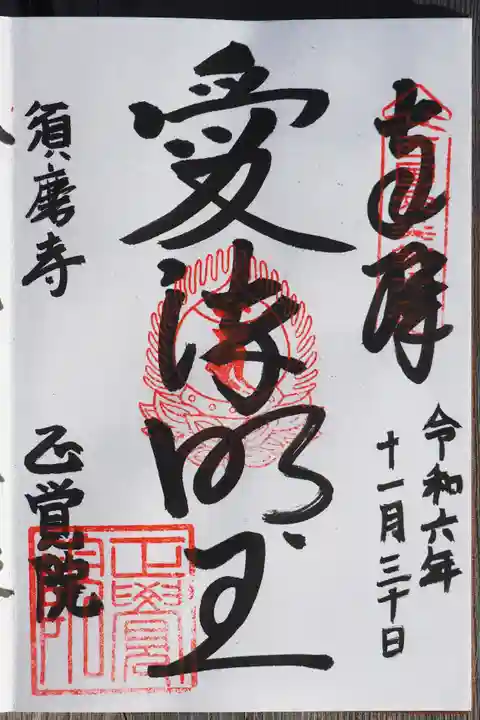 奉拝
令和六年
十一月三十日
愛染明王
須磨寺
正覚院
正覺院印